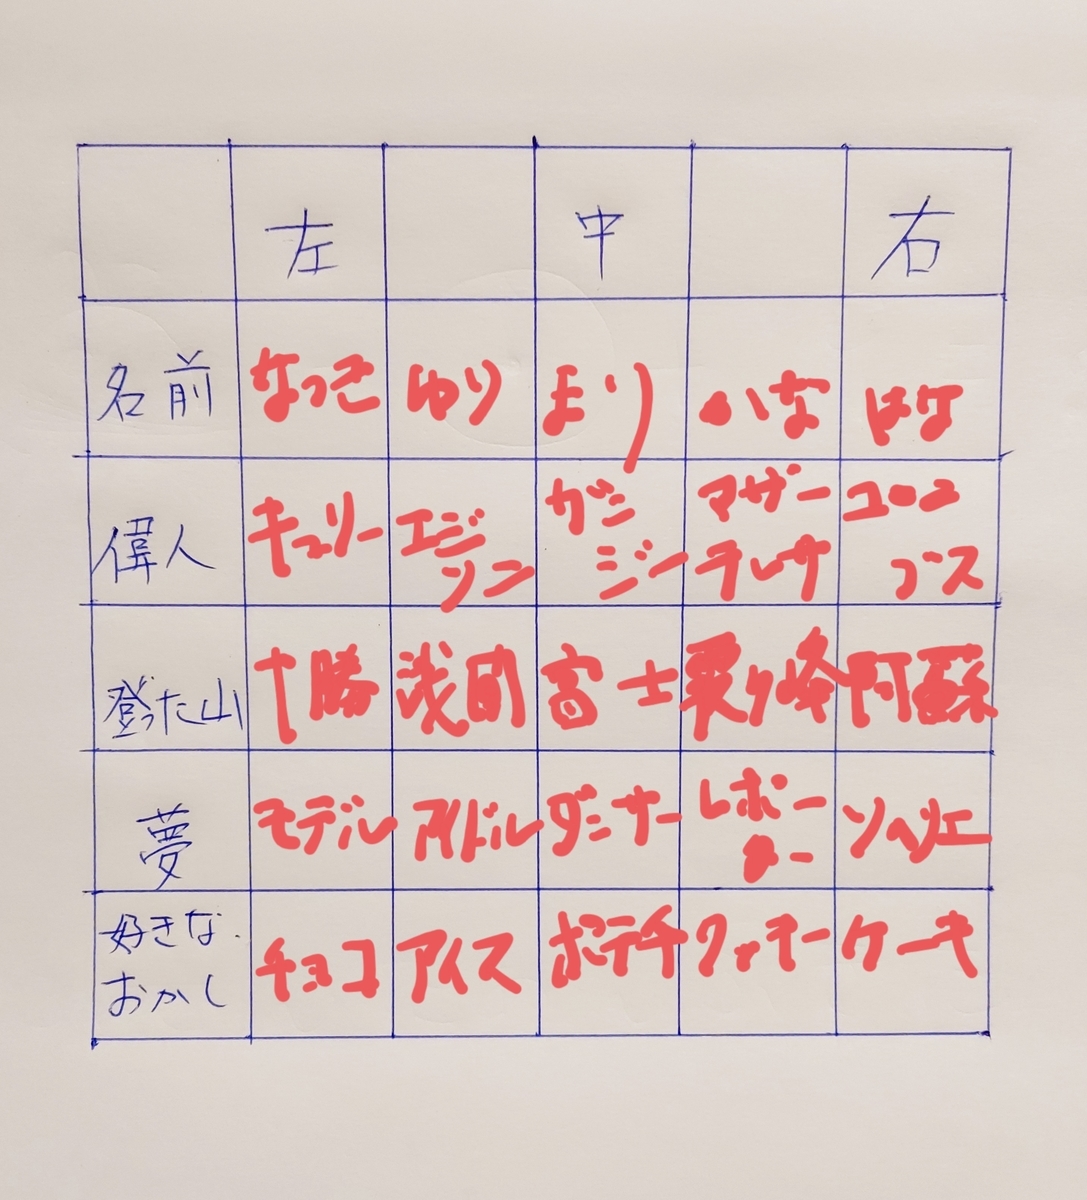 左 中 右
名前 なつき ゆり まり はな
偉人 キュリー エジソン ガンジー マザーテレサ コロンブス
登った山 十勝 浅間 富士 阿蘇
夢 モデル アイドル ダンサー レポーター ソムリエ
好きなおかし チョコ アイス ポテチ クッキー ケーキ